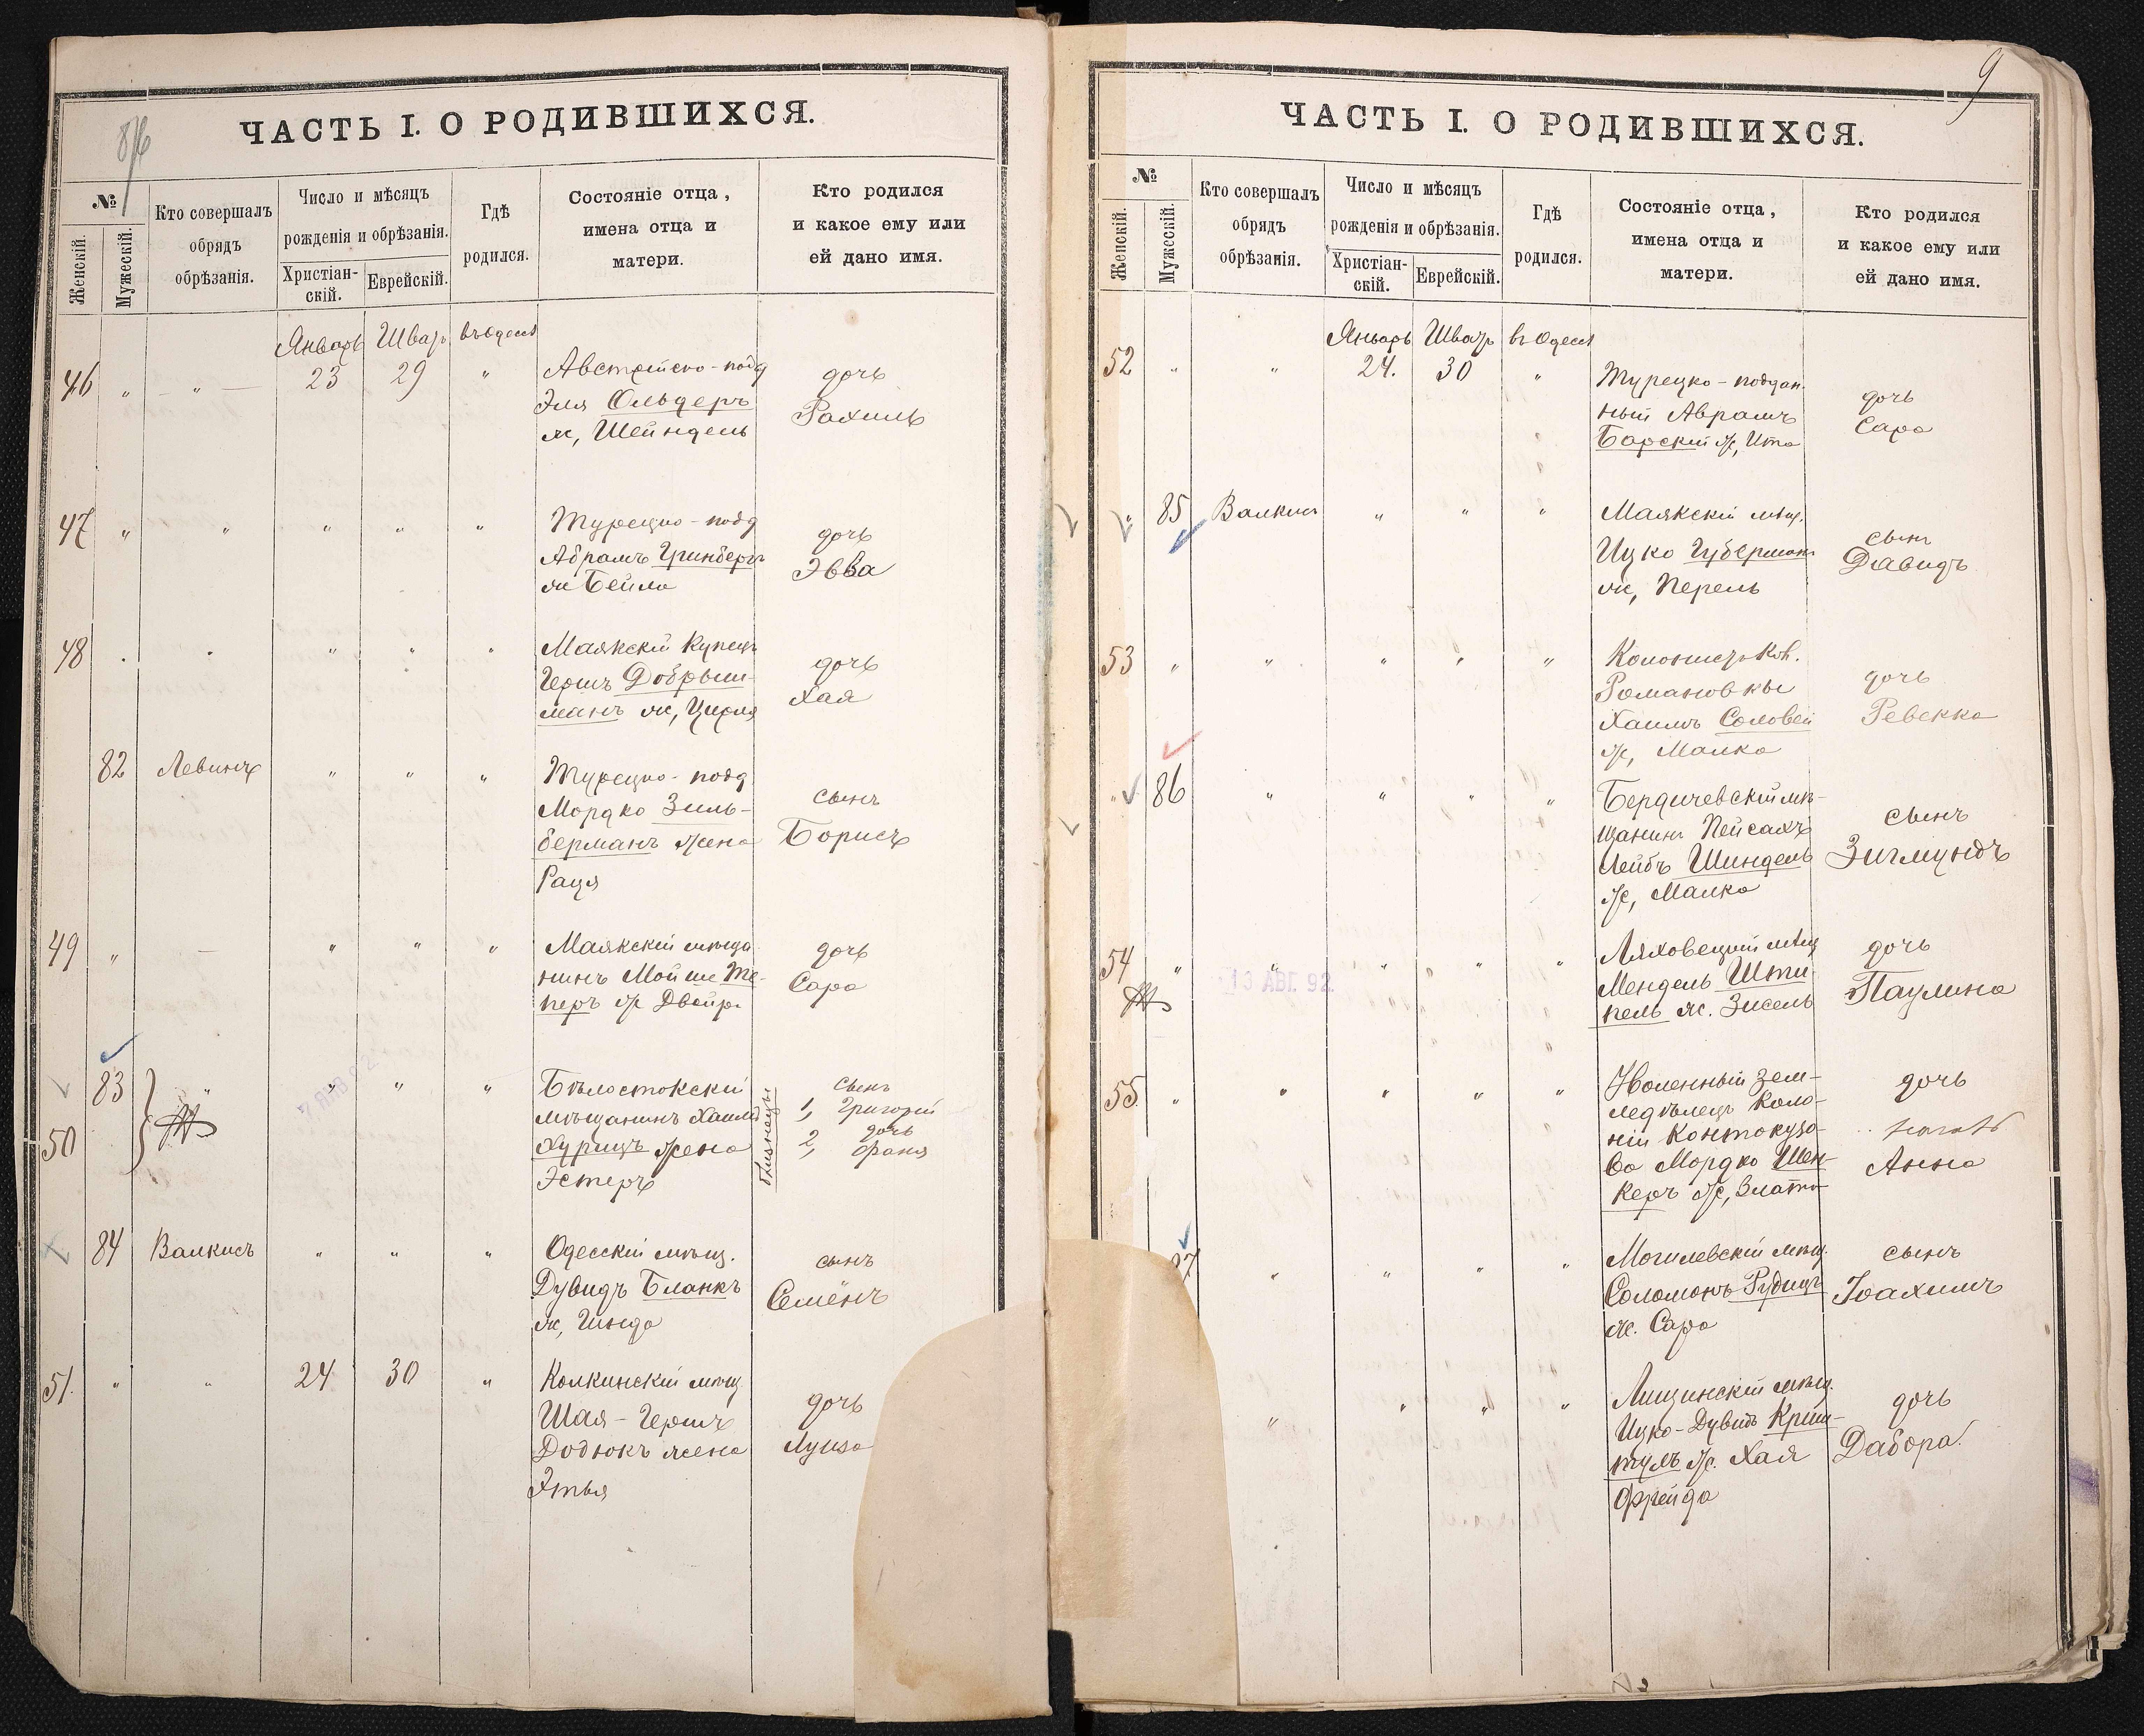 ЧАСТЬ I. О РОДИВШИХСЯ.
№
Женскій.
Мужескій.
Кто совершалъ
обрядъ
обрѣзанія.
Число и мѣсяцъ
рожденія и обрѣзанія.
Христіан-
скій.
Еврейскій.
Гдѣ
родился.
Состояніе отца,
имена отца и
матери.
Кто родился
и какое ему или
ей дано имя.
Январь Шватъ въ Одессѣ
46 „ „ 23 29 „
Австрійско-подд
Эля Ольдеръ
ж, Шейндель
дочь
Рахиль
47 „ „ „ „ „
Турецко-подд
Абрамъ Гринбергъ
ж Бейла
дочь
Эвва
48 „ „ „
Маякскій Купецъ
Гершъ Добрыш-
манъ ж, Цирля
дочь
Хая
82 Левинъ „ „ „
Турецко-подд
Мордко Зиль-
берманъ жена
Рация
сынъ
Борисъ
49 „ — „ „ „
Маякскій мѣща
нинъ Мойше Те-
перъ ж Двойра
дочь
Сара
83 „ „ „ „
50
Бѣлостокскій
мѣщанинъ Хаимъ
Хурицъ жена
Эстеръ
близнецы
сынъ
1, Григорій
дочь
2, Фаня
84 Валкисъ „ „ „
Одесскій мѣщ.
Дувидъ Бланкъ
ж, Гинда
сынъ
Семёнъ
51. „ „ 24 30 „
Колкинскій мѣщ
Шая-Гершъ
Додюкъ жена
Этья
дочь
Луиза
9
ЧАСТЬ I. О РОДИВШИХСЯ.
№
Женскій.
Мужескій.
Кто совершалъ
обрядъ
обрѣзанія.
Число и мѣсяцъ
рожденія и обрѣзанія.
Христіан-
скій.
Еврейскій.
Гдѣ
родился.
Состояніе отца,
имена отца и
матери.
Кто родился
и какое ему или
ей дано имя.
Январь Шватъ въ Одессѣ
52 „ „ 24. 30 „
Турецко-поддан.
ный Аврамъ
Барскій ж, Ита
дочь
Сара
„ 85 Валкисъ „ „ „
Маякскій мѣщ.
Ицко Губерманъ
ж, Перель
сынъ
Давидъ
53 „ „ „ „ „
Романовки
Хаимъ Соловей
ж, Малка
дочь
Ревекка
„ 86 „ „ „ „
Бердичевскій мѣ-
щанинъ Пейсахъ
Лейбъ Шиндель
ж, Малка
сынъ
Зигмундъ
54 „ „ „ „ „
13 АВГ. 92
Ляховецкій мѣщ
Мендель Шти
пель ж. Зисель
дочь
Паулина
55. „ „ „ „ „
земле-
ледѣлецъ Коло-
ніи Контокузо-
ва Мордко Шен-
керъ ж, Злата
дочь
Анна
„ „ „ „
Могилевскій мѣщ.
Соломонъ Рудицъ
ж. Сара
сынъ
Іоахимъ
„ „ „ „
Лищинскій мѣщ.
Ицко-Дувидъ Криш-
тулъ ж. Хая
Фрейда
дочь
Дабора.